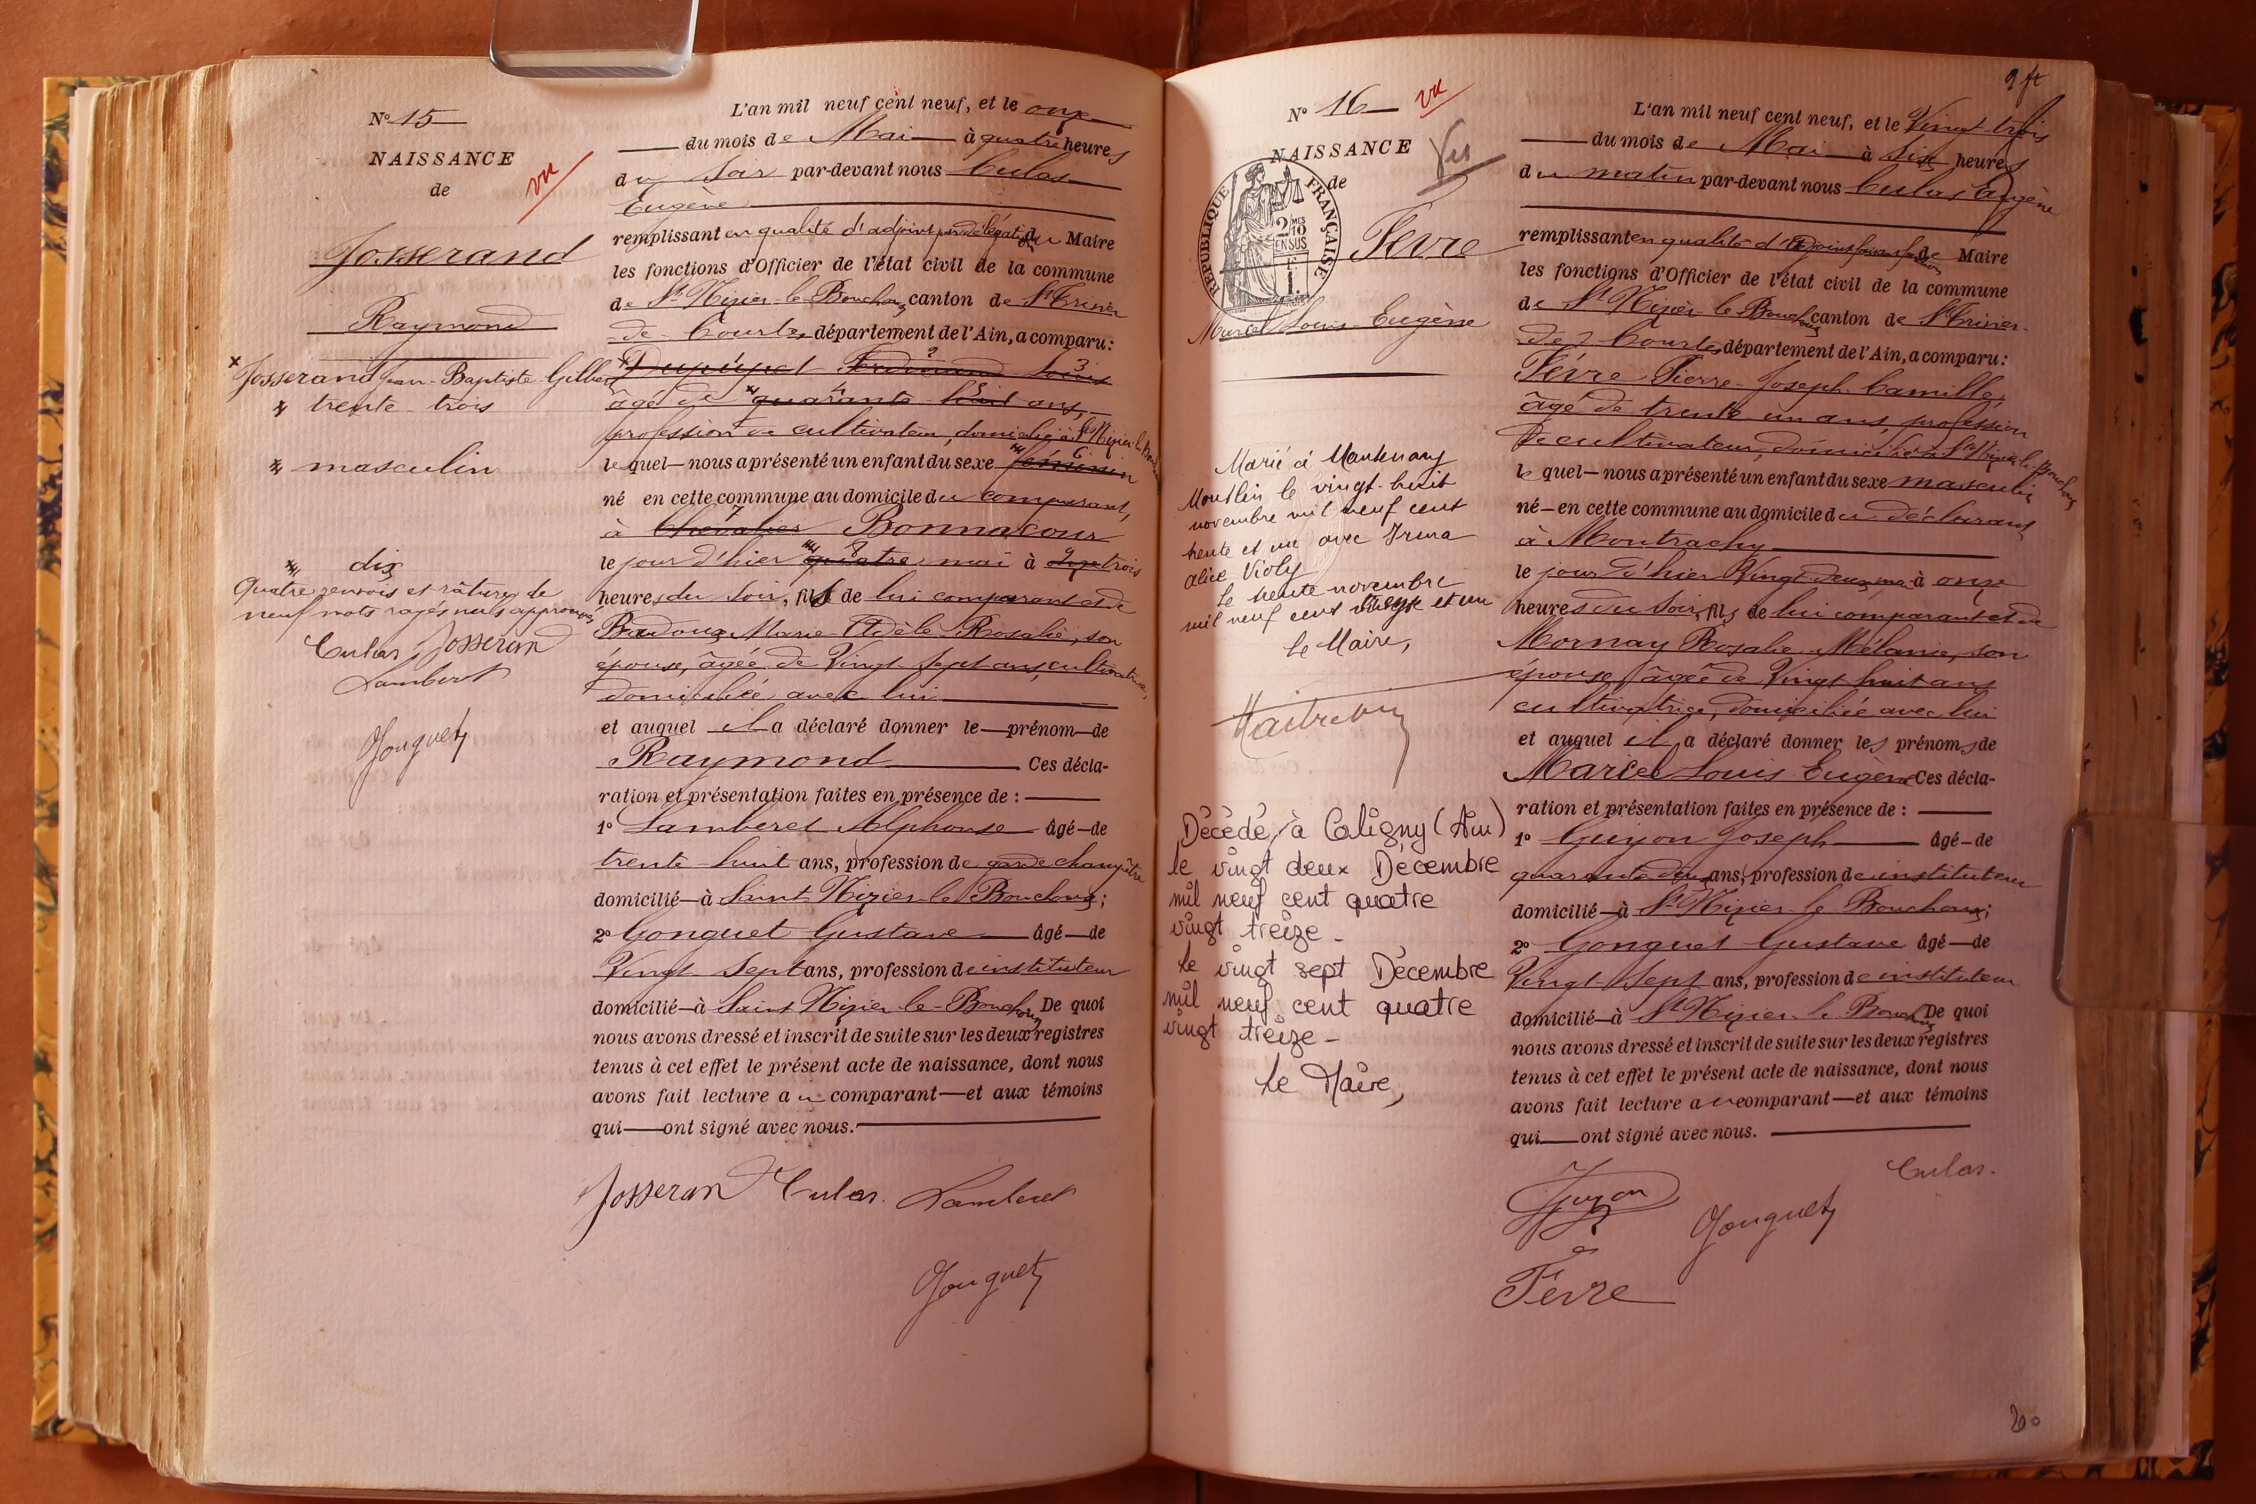 N° 15
NAISSANCE
de
vu
Josserand
Raymond
x Josserand Jean-Baptiste Gilbert
x trente-trois
x masculin
x dix
Quatre renvois et râtures de
neuf mots rayés nuls approuvés
Culas Josseran
Lamberet
Gonguet
L'an mil neuf cent neuf, et le onze
du mois de Mai à quatre heures
du soir par-devant nous Culas
Eugène
remplissant en qualité d'adjoint par délégation du Maire
les fonctions d'Officier de l'état civil de la commune
de St Nizier-le-Bouchoux canton de St Trivier
de Courtes, département de l'Ain, a comparu:
Dupupet Ferdinand Louis
âgé de quarante-huit ans,
profession de cultivateur, domicilié à St Nizier-le-Bouchoux
lequel nous a présenté un enfant du sexe féminin
né en cette commune au domicile du comparant,
à Chevalres Bonnacour
le jour d'hier quatre mai à onze trois
heures du soir, fils de lui comparant et de
Marie Adèle Rosalie, son
épouse, âgée de Vingt-sept ans, cultivatrice,
domiciliée avec lui
et auquel il a déclaré donner le prénom de
Raymond Ces décla-
ration et présentation faites en présence de :
1° Lamberet Alphonse âgé de
trente-huit ans, profession de garde champêtre
domicilié à Saint-Nizier-le-Bouchoux;
2° Gonguet Gustave âgé de
Vingt-Sept ans, profession de instituteur
domicilié à Saint Nizier-le-Bouchoux De quoi
nous avons dressé et inscrit de suite sur les deux registres
tenus à cet effet le présent acte de naissance, dont nous
avons fait lecture au comparant et aux témoins
qui ont signé avec nous.
Josseran Culas. Lamberet
Gonguet
N° 16 vu
NAISSANCE Vu
de
RÉPUBLIQUE FRANÇAISE
2/10 MES
EN SUS
1.
Fèvre
Marcel Louis Eugène
Marié à Mantenay
Montlin le vingt-huit
novembre mil neuf cent
trente et un avec Irma
Alice Violy
Le trente novembre
mil neuf cent trente et un
Le Maire,
Décédé à Coligny (Ain)
le vingt deux Décembre
mil neuf cent quatre
vingt treize -
Le vingt sept Décembre
mil neuf cent quatre
vingt treize -
Le Maire,
L'an mil neuf cent neuf, et le Vingt-trois
du mois de Mai à six heures
du matin par-devant nous Culas Eugène
remplissant en qualité d'adjoint de Maire
les fonctions d'Officier de l'état civil de la commune
de St Nizier-le-Bouchoux canton de St Trivier-
de-Courtes, département de l'Ain, a comparu:
Fèvre Pierre-Joseph-Camille,
âgé de trente un ans, profession
de cultivateur, domicilié à St Nizier-le-Bouchoux
lequel nous a présenté un enfant du sexe masculin
né en cette commune au domicile du déclarant
à Montrachy
le jour d'hier Vingt-deux mai à onze
heures du soir, fils de lui comparant et de
Mornay Rosalie Mélanie, son
épouse, âgée de Vingt huit ans
cultivatrice, domiciliée avec lui
et auquel il a déclaré donner les prénoms de
Marcel Louis Eugène Ces décla-
ration et présentation faites en présence de :
1° Guyon Joseph âgé de
quarante deux ans, profession de instituteur
domicilié à St Nizier-le-Bouchoux;
2° Gonguet Gustave âgé de
Vingt-Sept ans, profession de instituteur
domicilié à St Nizier-le-Bouchoux De quoi
nous avons dressé et inscrit de suite sur les deux registres
tenus à cet effet le présent acte de naissance, dont nous
avons fait lecture au comparant et aux témoins
qui ont signé avec nous.
Culas.
Guyon
Gonguet
Fèvre